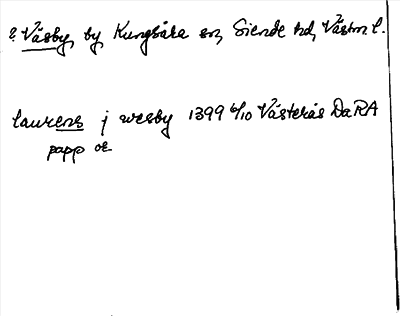 ? Väsby, by Kungsåra sn, Siende hd, Västm l.
laurens j wesby 1399 6/10 Västerås DaRA
papp or